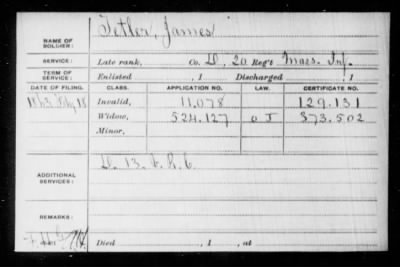 NAME OF SOLDIER: Tetler, James
SERVICE: Late rank, Co. D, 20 Reg't Mass. Inf.
TERM OF SERVICE: Enlisted , 1 Discharged , 1
DATE OF FILING. CLASS. APPLICATION NO. LAW. CERTIFICATE NO.
1863 July 18 Invalid, 11,078 129.131
Widow, 524.127 O J 373.502
Minor,
ADDITIONAL SERVICES: D. 13. V. R. C.
REMARKS:
Died , 1 , at